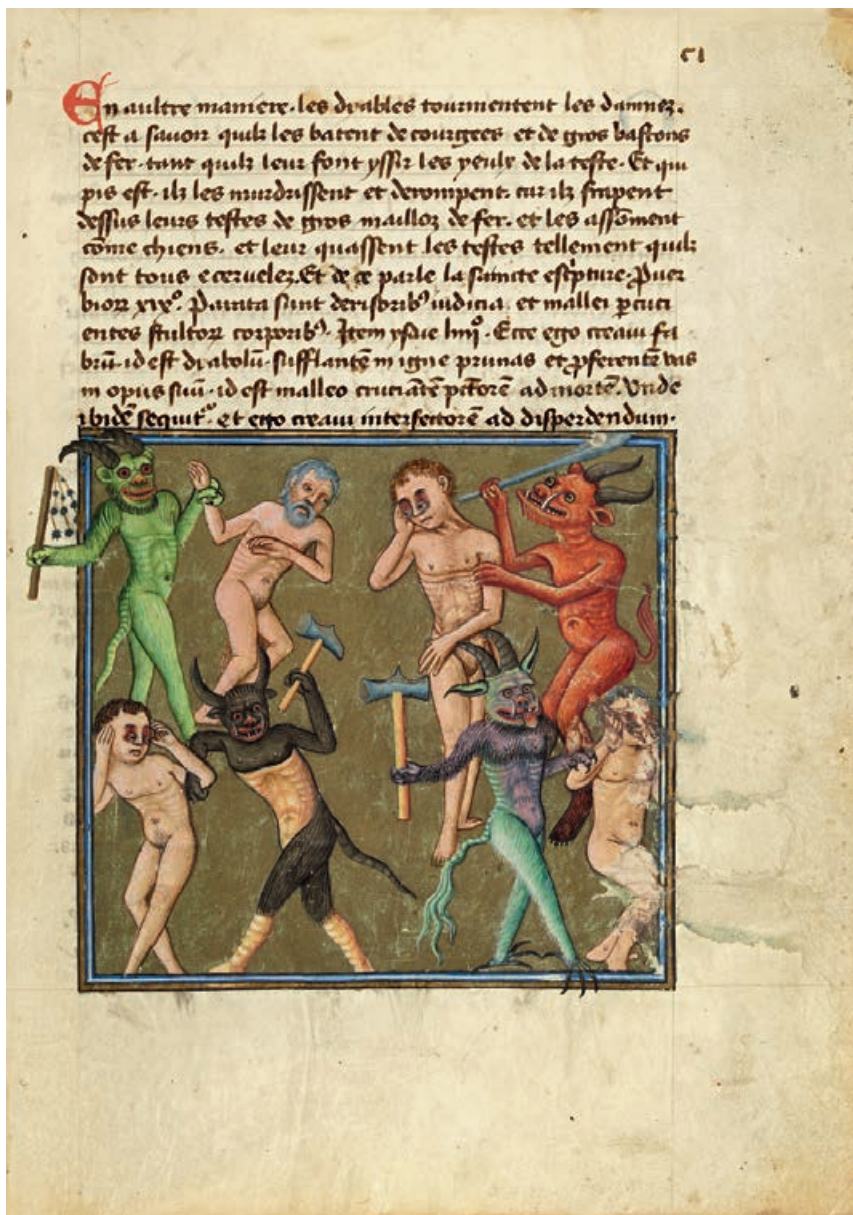 cı
En aultre maniere. les dyables tourmentent les damnez.
cest a savoir quilz les batent de courgees et de gros bastons
de fer. tant quilz leur font yssir les yeulx de la teste. Et qui
pis est. ilz les murdrissent et derompent. car ilz frapent
dessus leurs testes de gros mailloz de fer. et les assōment
cōme chiens. et leur quassent les testes tellement quilz
sont tous ecervelez. Et de ce parle la saincte escpture. Prouer
biorꝝ xixº. Parata sunt derisoribꝰ iudicia. et mallei ꝑcuci
entes stultorꝝ corporibꝰ. Item ysaie liiiiº. Ecce ego creaui fa
brū. id est dyabolū. sufflantē in igne prunas et ꝓferentē vas
in opus suū. id est malleo cruciātē pctōrē ad mortē. Vnde
ibidē sequitr. et ego creaui interfectorē ad disperdendum.